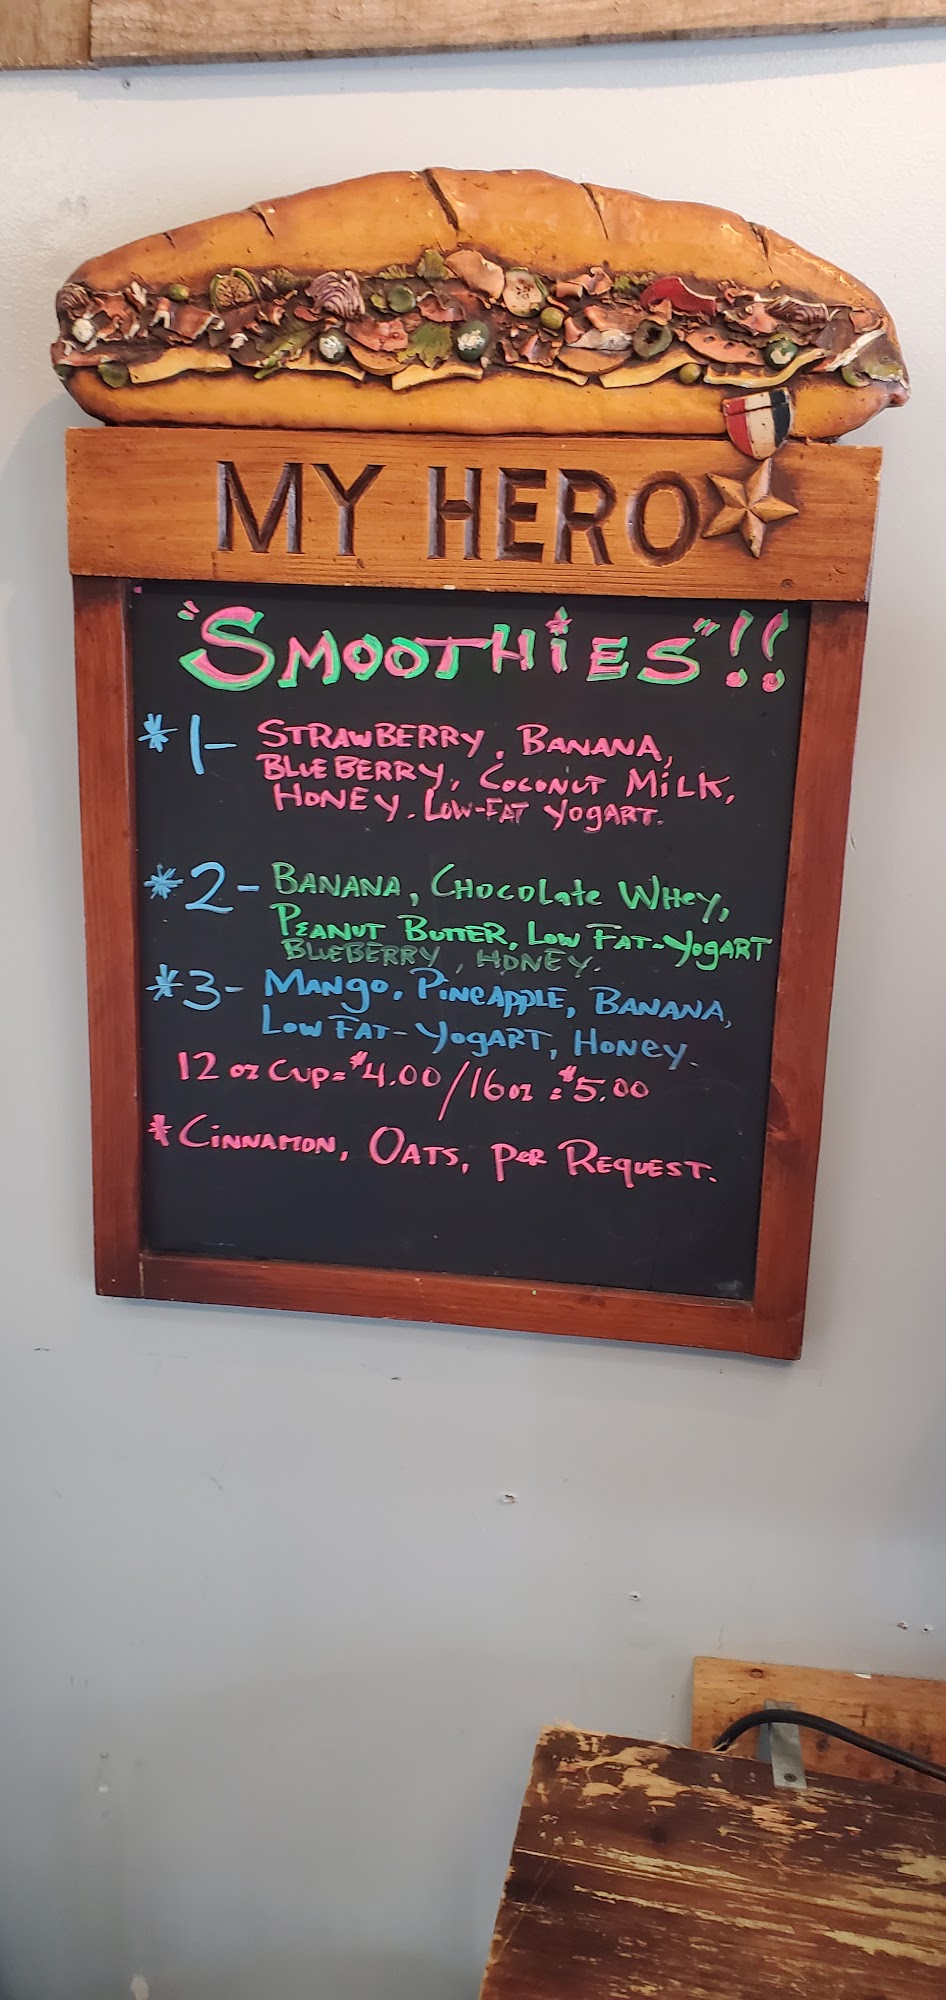 MY HERO
"SMOOTHiES"!!
*1- STRAWBERRY, BANANA,
BLUEBERRY, COCONUT MiLK,
HONEY. LOW-FAT YogART.
*2- BANANA, CHOCOLate WHey,
PEANUT BUTTER, LOW FAT-YogART
BLUEBERRY, HONEY.
*3- MANgo, PINEAPPLE, BANANA,
LOW FAT-YogART, HONEY.
12 oz CUP=$4.00/16oz =$5.00
*CiNNAMON, OATS, PER REQUEST.